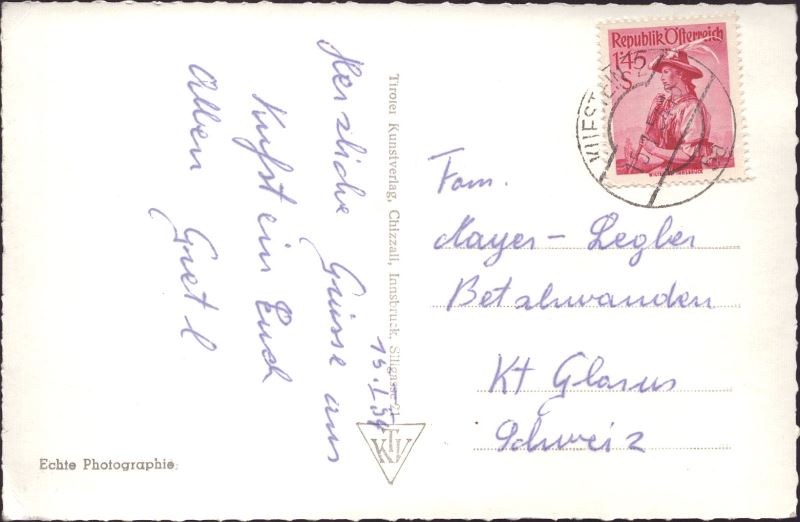 Herzliche Grüsse aus
Kufstein Euch
allen Gretl
15.I.54
Tiroler Kunstverlag, Chizzali, Innsbruck, Sillgasse 21
Echte Photographie
TKV
Republik Österreich
1'45
S
KUFSTEIN 2
Fam.
Mayer-Legler
Betschwanden
Kt Glarus
Schweiz